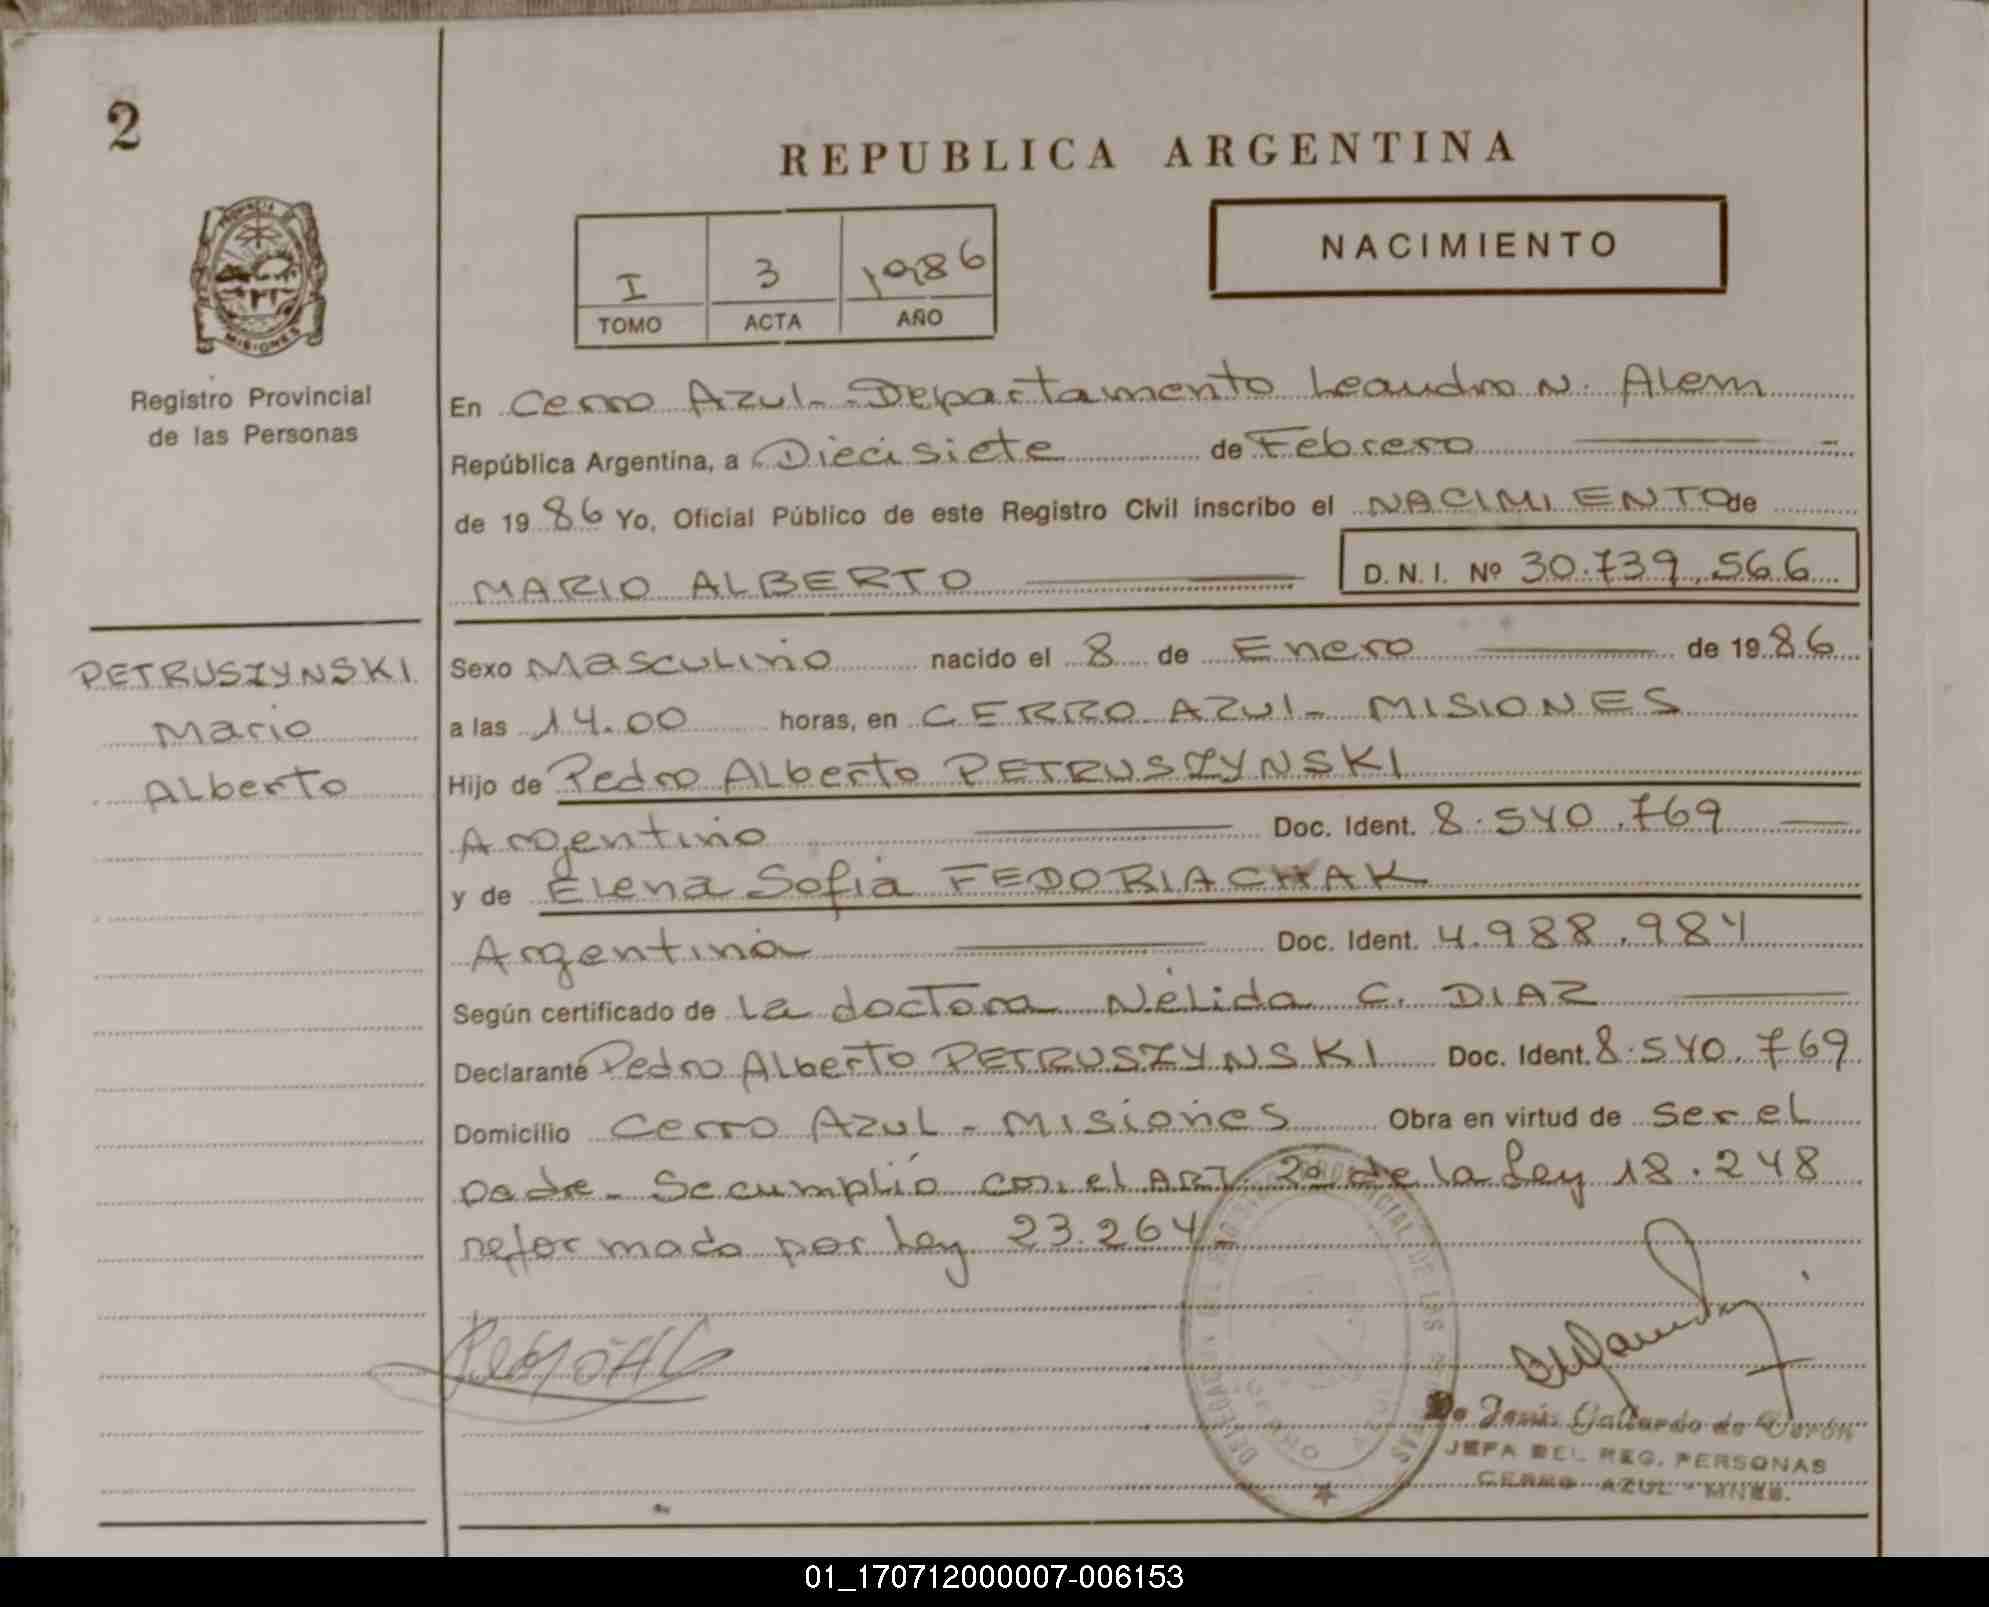 2
REPUBLICA ARGENTINA
NACIMIENTO
I 3 1986
TOMO ACTA AÑO
PROVINCIA
MISIONES
Registro Provincial
de las Personas
En Cerro Azul - Departamento Leandro N. Alem
República Argentina, a Diecisiete de Febrero
de 19 86 Yo, Oficial Público de este Registro Civil inscribo el NACIMIENTO de
MARIO ALBERTO D.N.I. Nº 30.739.566
PETRUSZYNSKI
Mario
Alberto
Sexo Masculino nacido el 8 de Enero de 19 86
a las 14.00 horas, en CERRO AZUL - MISIONES
Hijo de Pedro Alberto PETRUSZYNSKI
Argentino Doc. Ident. 8.540.769
y de Elena Sofia FEDORIACHAK
Argentina Doc. Ident. 4.988.984
Según certificado de la doctora Nélida C. DIAZ
Declarante Pedro Alberto PETRUSZYNSKI Doc. Ident. 8.540.769
Domicilio Cerro Azul - Misiones Obra en virtud de ser el
padre - Se cumplió con el ART. 2º de la Ley 18.248
reformado por Ley 23.264 -
Jesús Gallardo de
JEFA DEL REG. PERSONAS
CERRO AZUL - MNES.
01_170712000007-006153